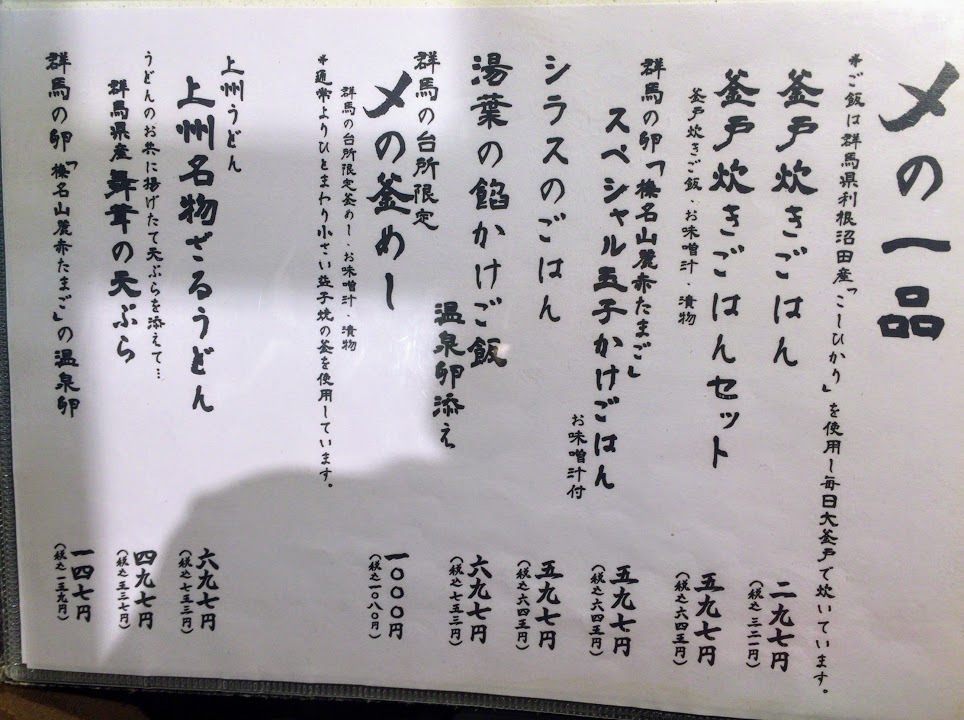 〆の一品
＊ご飯は群馬県利根沼田産「こしひかり」を使用し毎日大釜戸で炊いています。
釜戸炊きごはん
二九七円
（税込三二一円）
釜戸炊きごはんセット
釜戸炊きご飯・お味噌汁・漬物
五九七円
（税込六四五円）
群馬の卵「榛名山麓赤たまご」
スペシャル玉子かけごはん
お味噌汁付
五九七円
（税込六四五円）
シラスのごはん
五九七円
（税込六四五円）
湯葉の餡かけご飯
温泉卵添え
六九七円
（税込七五三円）
群馬の台所限定
〆の釜めし
群馬の台所限定釜めし・お味噌汁・漬物
＊通常よりひとまわり小さい益子焼の釜を使用しています。
一〇〇〇円
（税込一〇八〇円）
上州うどん
上州名物ざるうどん
六九七円
（税込七五三円）
うどんのお共に揚げたて天ぷらを添えて…
群馬県産舞茸の天ぷら
四九七円
（税込五三七円）
群馬の卵「榛名山麓赤たまご」の温泉卵
一四七円
（税込一五九円）